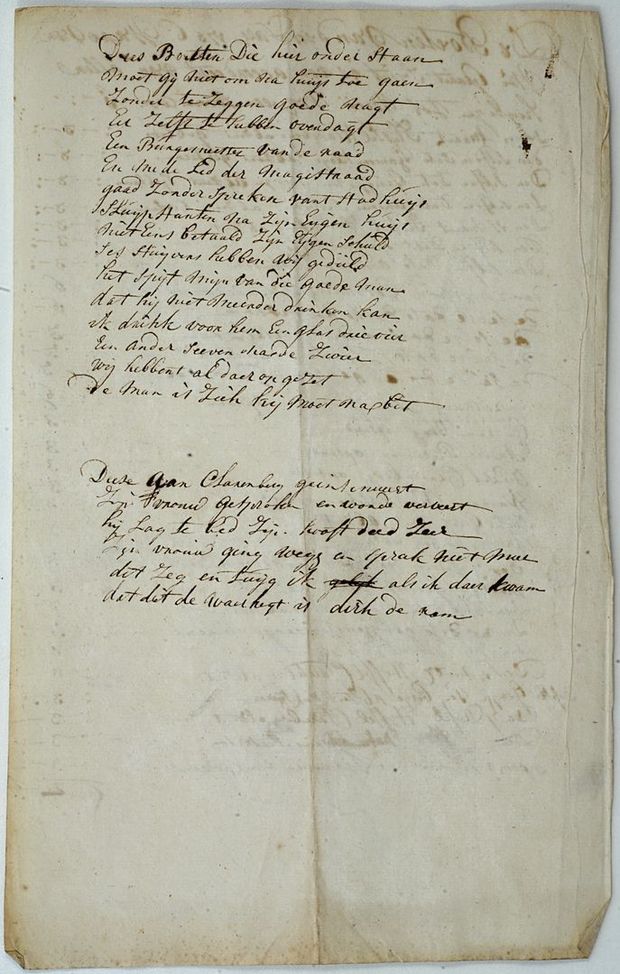 Dees Boeten Die hier onder Staan
Moet gij Niet om Na huijs toe gaen
Zonder te Zeggen goede Nagt
En Zelfs te hebben overdagt
Een Burgemeester van de raad
En Mede Lid der Magistraad
gaad Zonder Spreken vant Stad huijs
Na Zijn Eijgen huijs
Niet Eens betaald Zijn Eijgen Schuld
Ses Stuijvers hebben wij geduld
het Spijt Mijn van die goede Man
dat hij Niet Meerder drinken kan
ik drink voor hem Een glas drie vier
Een ander Seeven harde Zwier
wij hebbent al daer op gezet
De Man is Ziek hij Moet Na bet
Deese aan Clarenburg geinsinueert
Zijn vrouw gesproken en wierde verveert
hij Lag te bed Zijn hooft deed Zeer
Zijn vrouw ging wegg en sprak Niet Meer
dit Zeg en tuijg ik gelijk als ik daer kwam
dat dit de waerhegt is dirk de ram